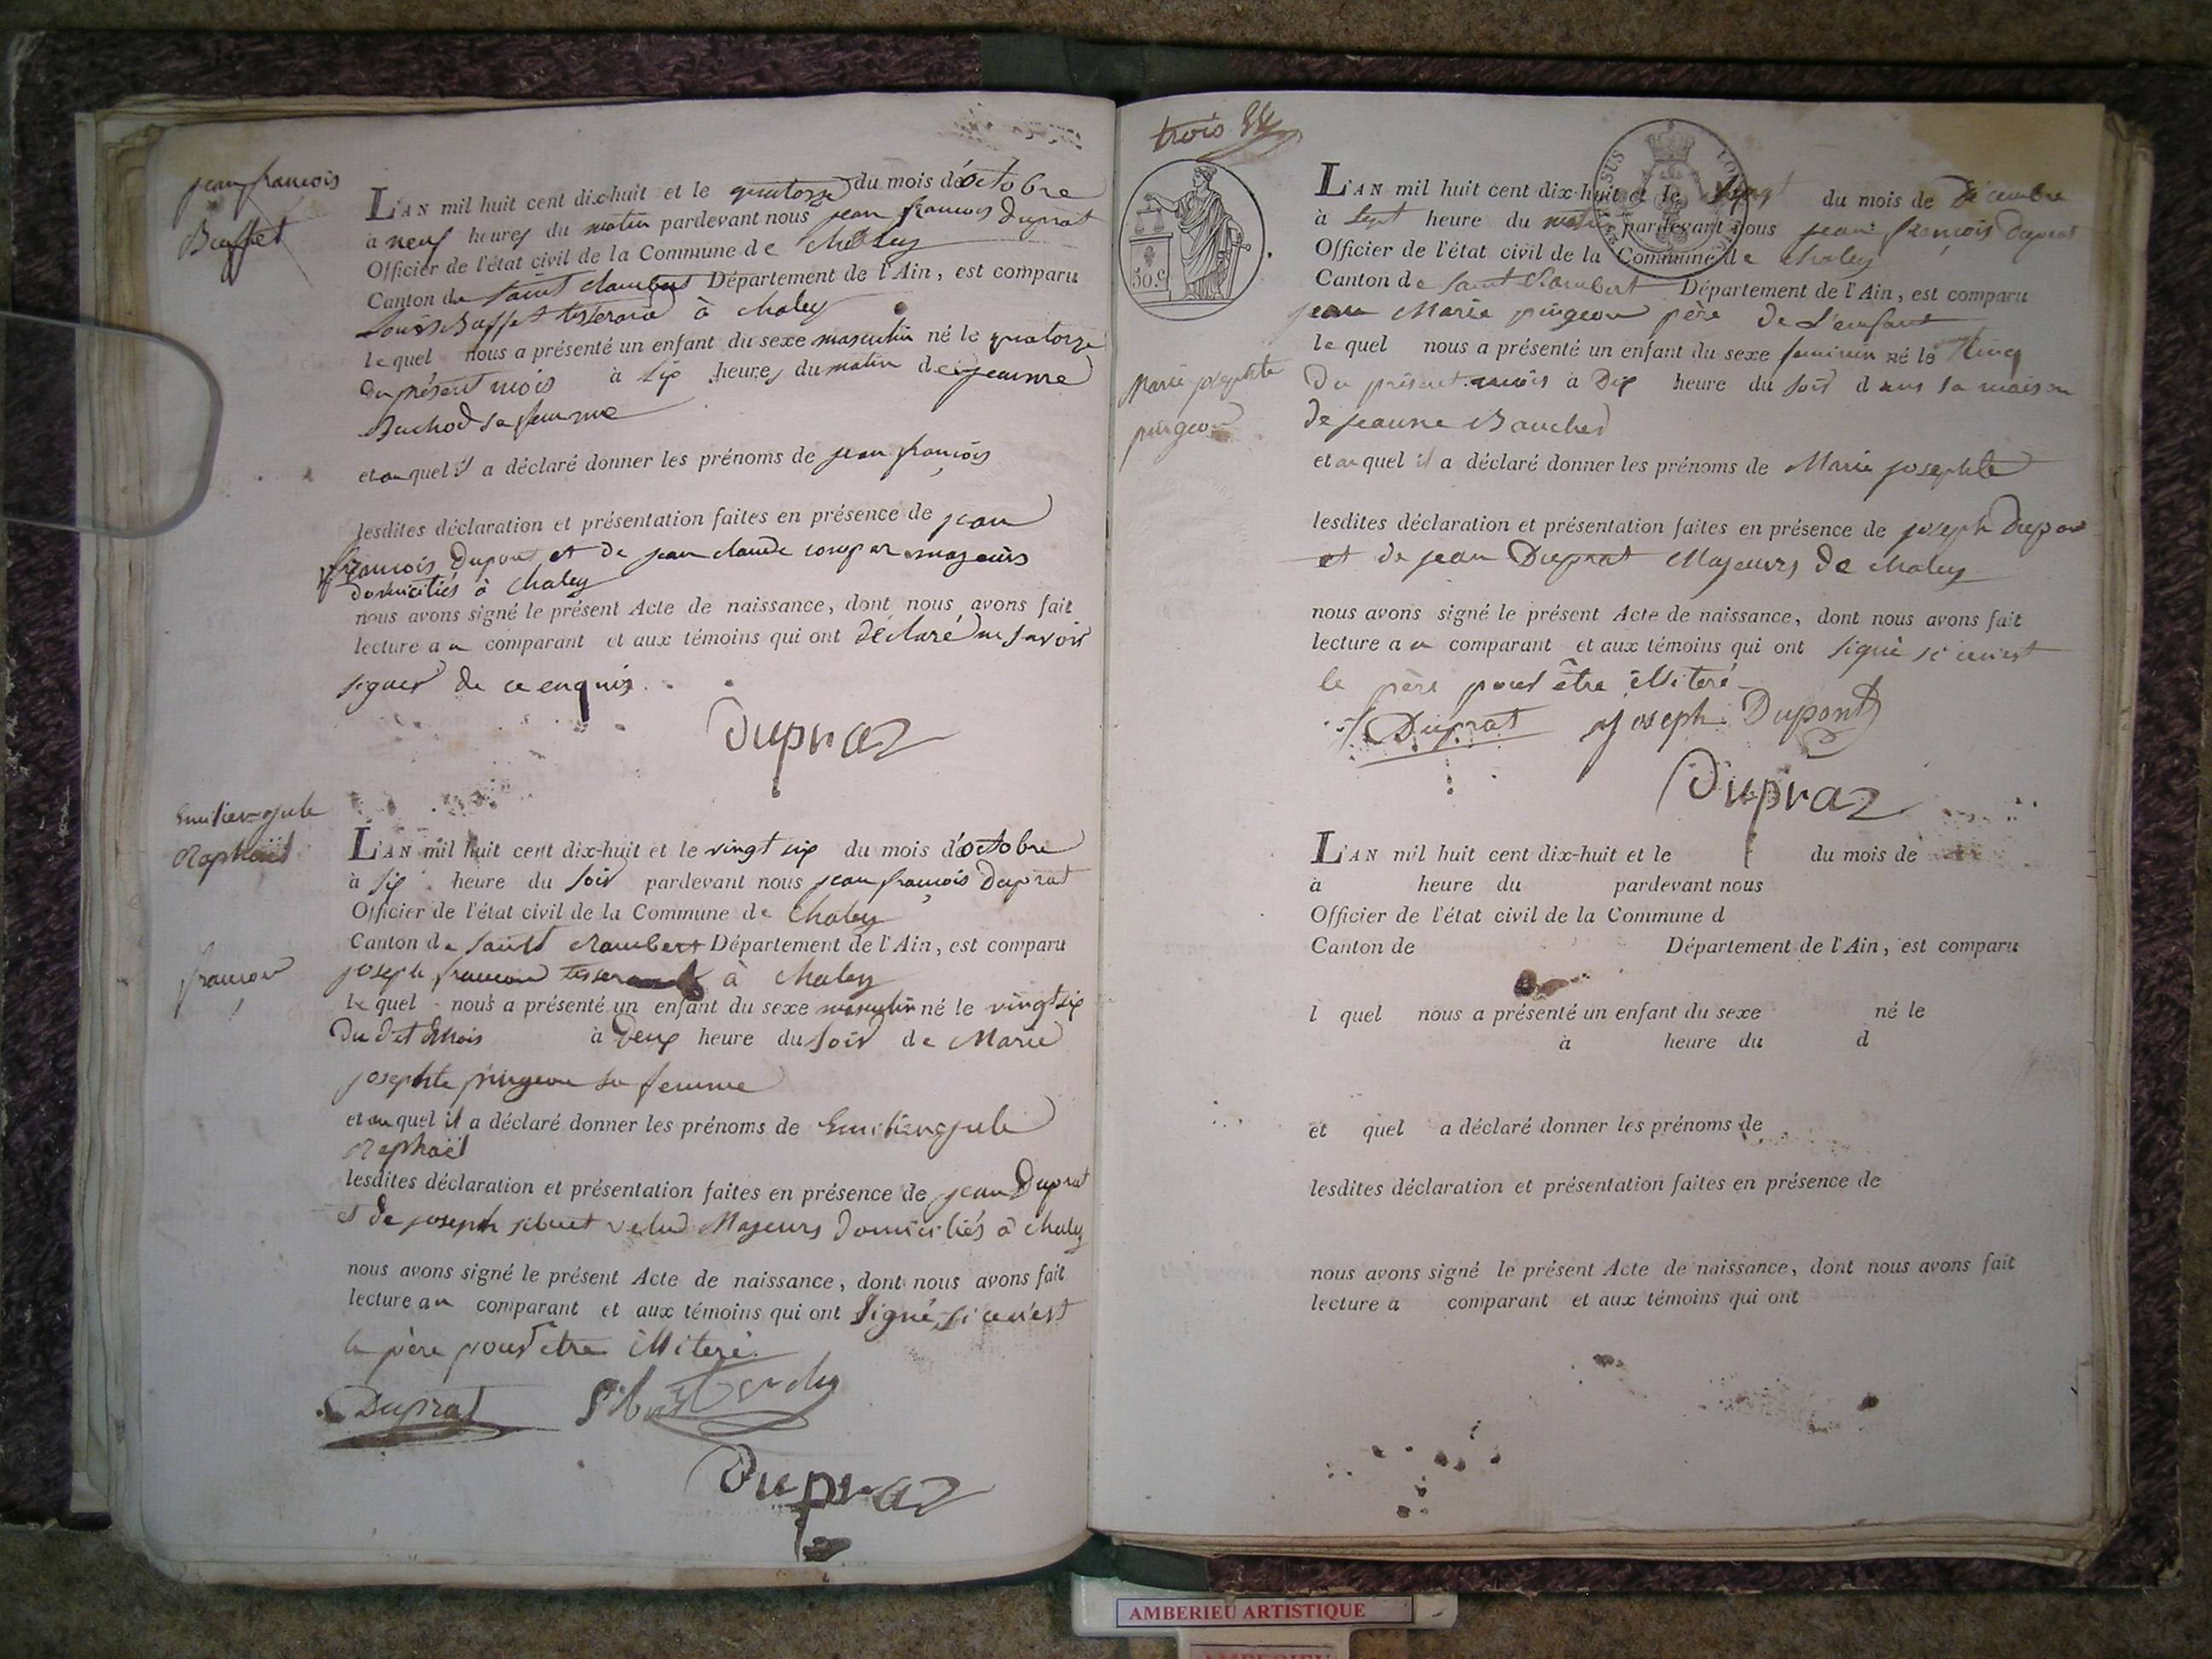 jean françois
Buffet
L'AN mil huit cent dix-huit et le quatorze du mois d'octobre
à neuf heures du matin pardevant nous jean françois Duprat
Officier de l'état civil de la Commune de Chaley
Canton de Saint Rambert Département de l'Ain, est comparu
Louis Buffet tisserand à Chaley
lequel nous a présenté un enfant du sexe masculin né le quatorze
du présent mois à six heures du matin de jeanne
Buchod sa femme
et auquel il a déclaré donner les prénoms de jean françois
lesdites déclaration et présentation faites en présence de jean
françois Dupont et de jean claude majeurs
domiciliés à Chaley
nous avons signé le présent Acte de naissance, dont nous avons fait
lecture au comparant et aux témoins qui ont déclaré ne savoir
signer de ce enquis.
Dupraz
Emilien jule
Raphaël
françon
L'AN mil huit cent dix-huit et le vingt six du mois d'octobre
à six heure du soir pardevant nous jean françois Duprat
Officier de l'état civil de la Commune de Chaley
Canton de Saint Rambert Département de l'Ain, est comparu
joseph françon tisserand à Chaley
lequel nous a présenté un enfant du sexe masculin né le vingt six
du dit mois à deux heure du soir de Marie
josephte pingeon sa femme
et auquel il a déclaré donner les prénoms de Emilien jule
Raphaël
lesdites déclaration et présentation faites en présence de jean Duprat
et de joseph sibuet velu Majeurs domiciliés à Chaley
nous avons signé le présent Acte de naissance, dont nous avons fait
lecture au comparant et aux témoins qui ont signé si ce n'est
le père pour etre illiteré.
Duprat
Dupraz
trois
50.c
L'AN mil huit cent dix-huit et le Sept du mois de Décembre
à Sept heure du matin pardevant nous jean françois Duprat
Officier de l'état civil de la Commune de Chaley
Canton de Saint Rambert Département de l'Ain, est comparu
jean Marie pingeon père de L'enfant
lequel nous a présenté un enfant du sexe feminin né le cinq
Marie josephte
pingeon
Du présent mois à Dix heure du soir dans sa maison
de jeanne Baucher
et auquel il a déclaré donner les prénoms de Marie josephte
lesdites déclaration et présentation faites en présence de joseph Dupont
et de jean Duprat Majeurs de Chaley
nous avons signé le présent Acte de naissance, dont nous avons fait
lecture au comparant et aux témoins qui ont signé si ce n'est
le père pour être illiteré
Duprat joseph Dupont
Dupraz
L'AN mil huit cent dix-huit et le du mois de
à heure du pardevant nous
Officier de l'état civil de la Commune d
Canton de Département de l'Ain, est comparu
l quel nous a présenté un enfant du sexe né le
à heure du d
et quel a déclaré donner les prénoms de
lesdites déclaration et présentation faites en présence de
nous avons signé le présent Acte de naissance, dont nous avons fait
lecture a comparant et aux témoins qui ont
AMBERIEU ARTISTIQUE
AMBERIEU